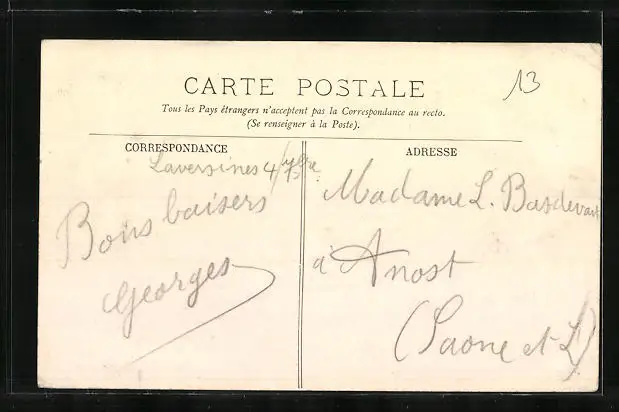 CARTE POSTALE
13
Tous les Pays étrangers n'acceptent pas la Correspondance au recto.
(Se renseigner à la Poste).
CORRESPONDANCE
Laversines 4/7bre
Bons baisers
Georges
ADRESSE
Madame L. Basdevant
à Anost
(Saone et L)